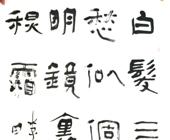 白髮三
愁似個
明鏡裏
秋霜